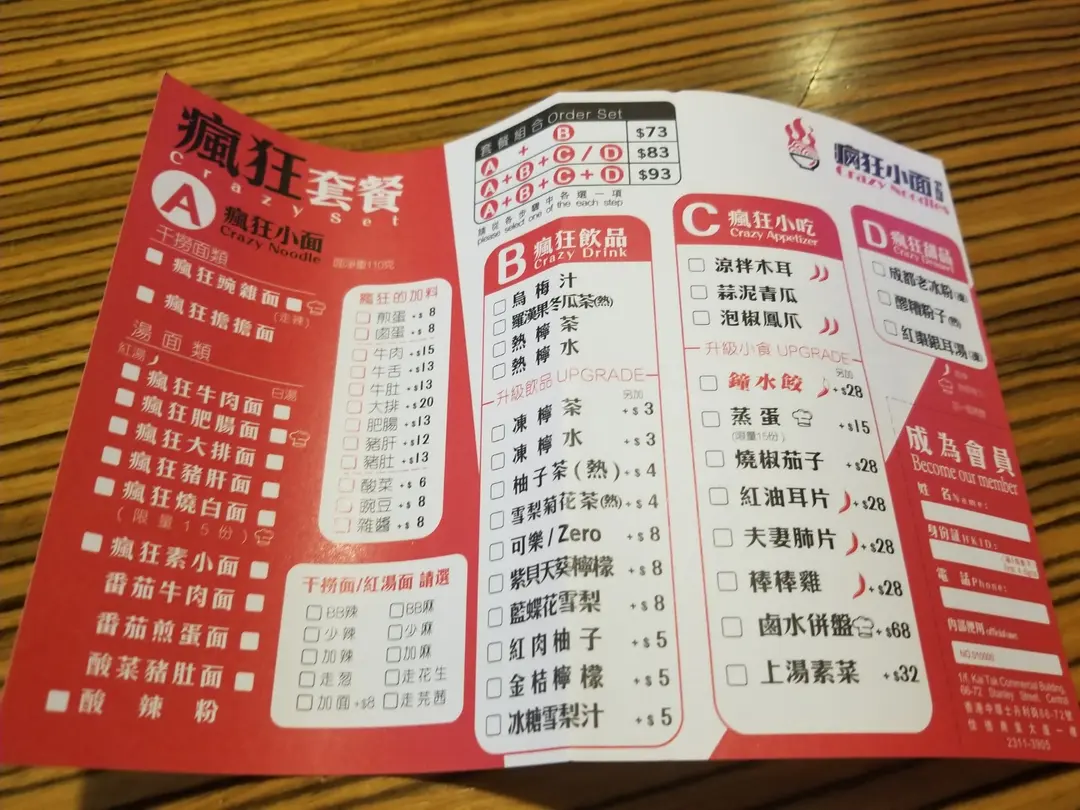 瘋狂套餐
Crazy Set
A 瘋狂小面
Crazy Noodle
干撈面類
瘋狂豌雜面
(走辣)
瘋狂擔擔面
湯面類
紅湯 白湯
瘋狂牛肉面
瘋狂肥腸面
瘋狂大排面
瘋狂豬肝面
瘋狂燒白面
(限量15份)
瘋狂素小面
番茄牛肉面
番茄煎蛋面
酸菜豬肚面
酸辣粉
瘋狂的加料
煎蛋 +$ 8
鹵蛋 +$ 8
牛肉 +$15
牛舌 +$13
牛肚 +$13
大排 +$20
肥腸 +$13
豬肝 +$12
豬肚 +$13
酸菜 +$ 6
豌豆 +$ 8
雜醬 +$ 8
干撈面/紅湯面 請選
BB辣 BB麻
少辣 少麻
加辣 加麻
走葱 走花生
加面+$8 走芫茜
套餐組合 Order Set
A + B $73
A+B+C/D $83
A+B+C+D $93
請從各步驟中各選一項
please select one of the each step
B 瘋狂飲品
Crazy Drink
烏梅汁
羅漢果冬瓜茶(熱)
熱檸茶
熱檸水
升級飲品 UPGRADE
另加
凍檸茶 +$ 3
凍檸水 +$ 3
柚子茶(熱) +$ 4
雪梨菊花茶(熱) +$ 4
可樂/Zero +$ 8
紫貝天葵檸檬 +$ 8
藍蝶花雪梨 +$ 8
紅肉柚子 +$ 5
金桔檸檬 +$ 5
冰糖雪梨汁 +$ 5
C 瘋狂小吃
Crazy Appetizer
涼拌木耳
蒜泥青瓜
泡椒鳳爪
升級小食 UPGRADE
另加
鐘水餃 +$28
蒸蛋 +$15
(限量15份)
燒椒茄子 +$28
紅油耳片 +$28
夫妻肺片 +$28
棒棒雞 +$28
鹵水併盤 +$68
上湯素菜 +$32
瘋狂小面
Crazy Noodles
D 瘋狂甜品
Crazy Dessert
成都老冰粉(凍)
醪糟粉子(熱)
紅棗銀耳湯(凍)
成為會員
Become our member
姓名Name:
身份証HKID:
電話Phone:
內部使用 official use:
1/f, Kai Tak Commercial Building,
66-72 Stanley Street, Central
香港中環士丹利街66-72號
佳德商業大廈一樓
2311-3905